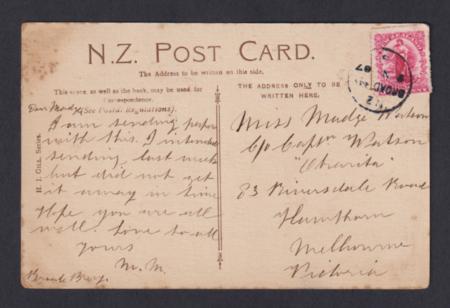 N.Z. POST CARD.
The Address to be written on this side.
This space, as well as the back, may be used for
Correspondence.
(See Postal Regulations).
THE ADDRESS ONLY TO BE
WRITTEN HERE.
H. J. GILL Series.
Dear Madge
I am sending paper
with this. I intended
sending last week
but did not get
it away in time
Hope you are all
well. Love to all
yours
M. M.
Miss Madge Watson
C/o Captn Watson
83 Riversdale Road
Hawthorn
Melbourne
Victoria
N.Z
07